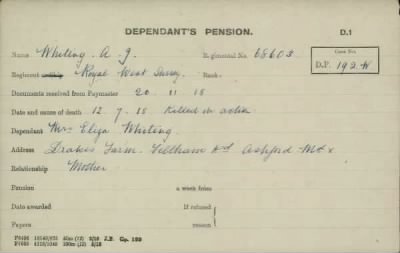 DEPENDANT'S PENSION. D.1
Name Whiting A. J. Regimental No. 68603 Case No.
Regiment or Ship Royal West Surrey Rank D.P. 192 W
Documents received from Paymaster 20 11 18
Date and cause of death 12 7 18 Killed in action
Dependant Mrs Eliza Whiting
Address Drakes Farm. Feltham Rd Ashford Mdx
Relationship Mother
Pension a week from
Date awarded If refused
Papers reason
J.B. Gp. 103